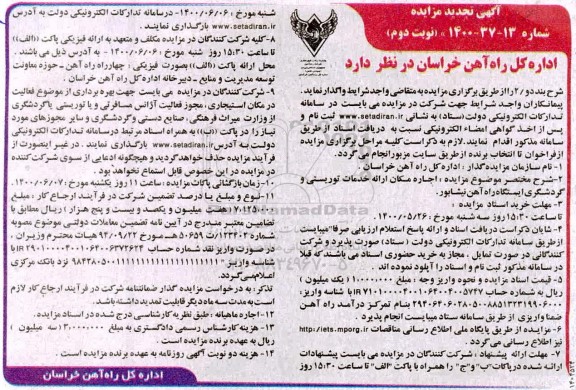 آگهی تجدید مزایده
شماره ۱۳-۳۷-۱۴۰۰ (نوبت دوم)
اداره کل راه آهن خراسان در نظر دارد
شرح بند دو / ۲ را از طریق برگزاری مزایده به متقاضی واجد شرایط واگذار نماید.
پیمانکاران واجد شرایط جهت شرکت در مزایده می بایست در سامانه
تدارکات الکترونیکی دولت (ستاد) به نشانی www.setadiran.ir ثبت نام و
پس از اخذ گواهی امضاء الکترونیکی نسبت به دریافت اسناد از طریق
سامانه مذکور اقدام نمایند. لازم به ذکر است کلیه مراحل برگزاری مزایده
از فراخوان تا انتخاب برنده از طریق سایت مزبور انجام می گردد.
۱- نام سازمان مزایده گذار : اداره کل راه آهن خراسان.
۲- شرح مختصر موضوع مزایده : اجاره مکان ارائه خدمات توریستی و
گردشگری ایستگاه راه آهن نیشابور.
۳- مهلت خرید اسناد مزایده :
تا ساعت ۱۵:۳۰ روز سه شنبه مورخ ۱۴۰۰/۰۵/۲۶
۴- شایان ذکر است دریافت اسناد و ارائه پاسخ استعلام ارزیابی صرفا" میبایست
از طریق سامانه تدارکات الکترونیکی دولت (ستاد) صورت پذیرد و شرکت
کنندگانی در صورت تمایل ، مجاز به خرید حضوری اسناد می باشند که قبلا
در سامانه مذکور ثبت نام و اسناد را آپلود نموده اند.
۵- قیمت اسناد مزایده و نحوه واریز وجه : مبلغ ۱۰۰۰۰۰۰ ( یک میلیون )
ریال به شماره حساب
بنام تمرکز درآمد راه آهن
ضمنا واریزی از طریق سامانه ستاد میبایست انجام پذیرد.
۶- مزایده از طریق پایگاه ملی اطلاع رسانی مناقصات http://iets.mporg.ir
نیز اطلاع رسانی می گردد.
۷- مهلت ارائه پیشنهاد : شرکت کنندگان در مزایده می بایست پیشنهادات
ارائه شده در پاکات "ب" و "ج" را همراه با پاکت "الف" تا ساعت ۱۵:۳۰ روز
شنبه مورخ : ۱۴۰۰/۰۶/۰۶ - در سامانه تدارکات الکترونیکی دولت به آدرس
www.setadiran.ir بارگذاری نمایند.
۸- کلیه شرکت کنندگان در مزایده مکلف و متعهد به ارائه فیزیکی پاکت ((الف))
تا ساعت ۱۵:۳۰ روز شنبه مورخ : ۱۴۰۰/۰۶/۰۶ - به آدرس ذیل می باشند.
محل ارائه پاکت ((الف)) بصورت فیزیکی : چهارراه راه آهن - حوزه معاونت
توسعه مدیریت و منابع - دبیرخانه اداره کل راه آهن خراسان.
۹- شرکت کنندگان در مزایده می بایست جهت بهره برداری از موضوع فعالیت
در مکان استیجاری ، مجوز فعالیت آژانس مسافرتی و یا توریستی یا گردشگری
از وزارت میراث فرهنگی، صنایع دستی و گردشگری و سایر مجوزهای مورد
نیاز را در پاکت ((ب)) به همراه اسناد مرتبط در سامانه تدارکات الکترونیکی
دولت به آدرس www.setadiran.ir بارگذاری نمایند. در غیر اینصورت از
فرآیند مزایده حذف خواهد گردید و هیچگونه ادعایی از سوی شرکت کننده
در مزایده در این خصوص قابل استماع نخواهد بود.
۱۰- زمان بازگشائی پاکات مزایده : ساعت ۱۱ روز یکشنبه مورخ : ۱۴۰۰/۰۶/۰۷
۱۱- نوع و مبلغ یا درصد تضمین شرکت در فرآیند ارجاع کار : مبلغ
هفت میلیون و یکصد و بیست و پنج هزار ) ریال مطابق با
تضامین معتبر مندرج در آیین نامه تضمین معاملات دولتی موضوع مصوبه
شماره ۱۲۳۴۰۲/ت ۵۰۶۵۹ هـ مورخ ۹۴/۰۹/۲۲ هیات محترم وزیران.
در صورت واریز نقد شماره حساب
شناسه واریز
نزد بانک مرکزی
اعلام می گردد.
تذکر: به درخواست مزایده گذار ضمانتنامه شرکت در فرآیند ارجاع کار لازم
است به مدت سه ماه دیگر قابلیت تمدید داشته باشد.
۱۲- اجاره ماهیانه : طبق نظریه کارشناسی درج شده در اسناد مزایده.
۱۳- هزینه کارشناس رسمی دادگستری به مبلغ ۳۰۰۰۰۰۰ (سه میلیون )
ریال به عهده برنده مزایده است.
۱۴- هزینه دو نوبت آگهی روزنامه به عهده برنده مزایده است.
اداره کل راه آهن خراسان